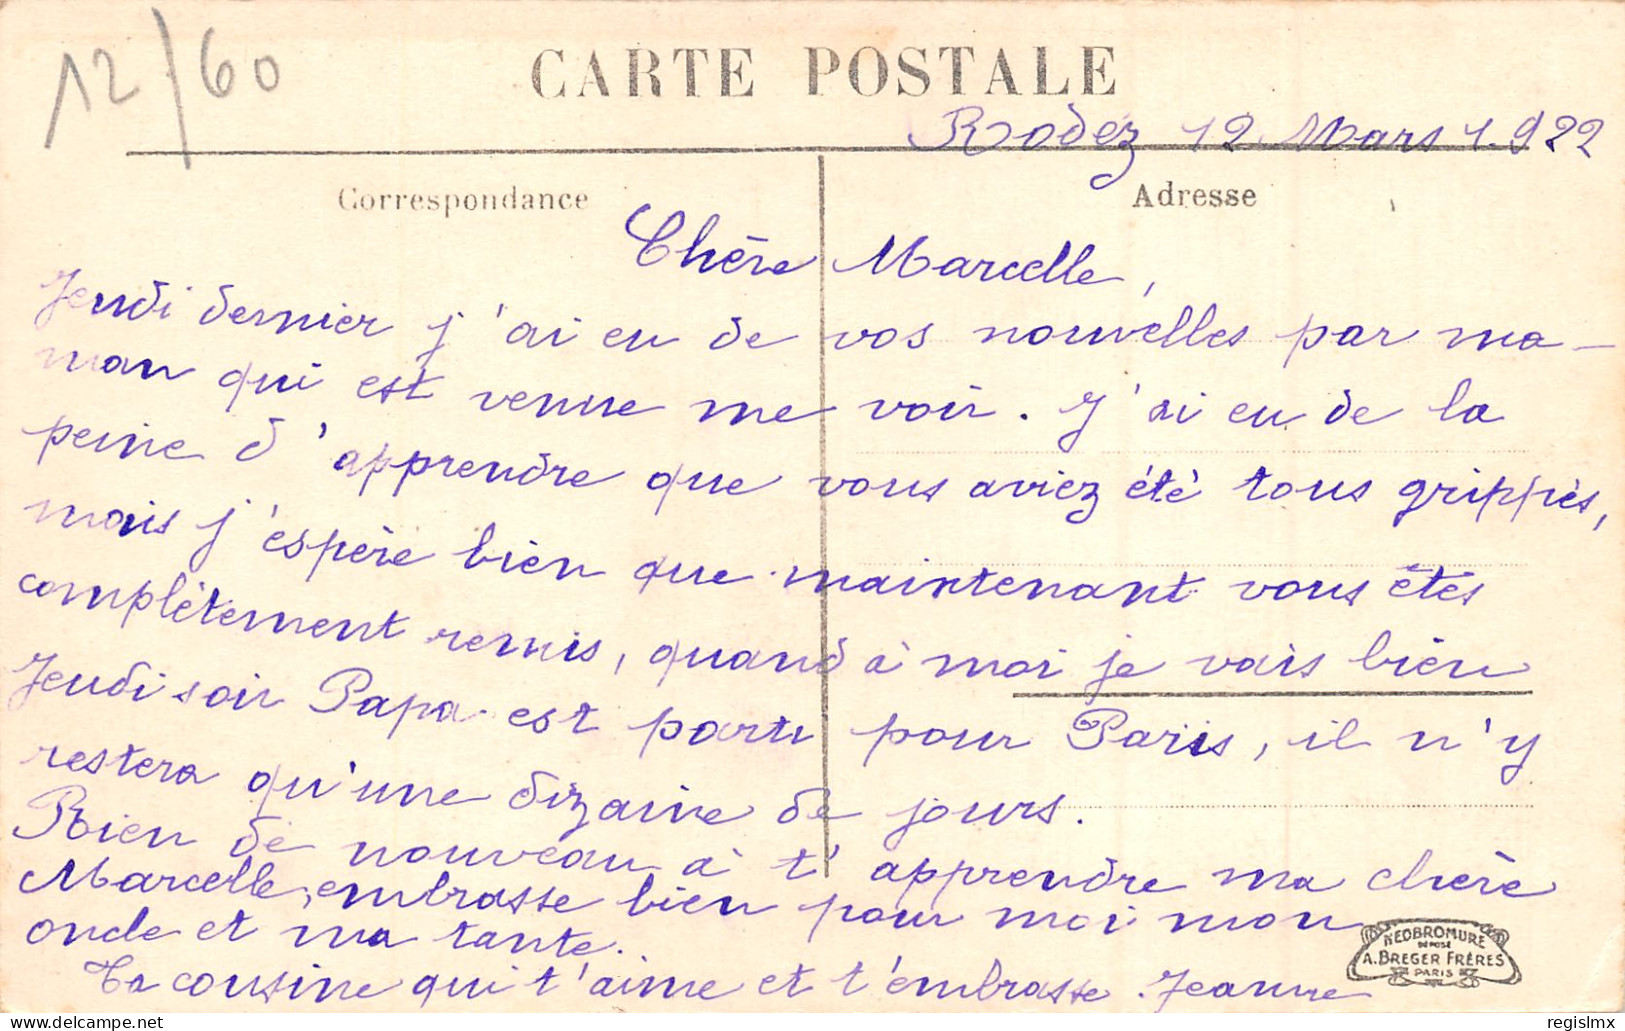 12/60
CARTE POSTALE
Rodez 12 Mars 1.922
Correspondance
Adresse
Chère Marcelle,
Jeudi dernier j'ai eu de vos nouvelles par ma-
man qui est venue me voir. J'ai eu de la
peine d'apprendre que vous aviez été tous grippés,
mais j'espère bien que maintenant vous êtes
complètement remis, quand à moi je vais bien
Jeudi soir Papa est parti pour Paris, il n'y
restera qu'une dizaine de jours.
Rien de nouveau à t'apprendre ma chère
Marcelle, embrasse bien pour moi mon
oncle et ma tante.
Ta cousine qui t'aime et t'embrasse. Jeanne
NEOBROMURE
DEPOSÉ
A. BREGER FRÈRES
PARIS
delcampe.net
regislmx